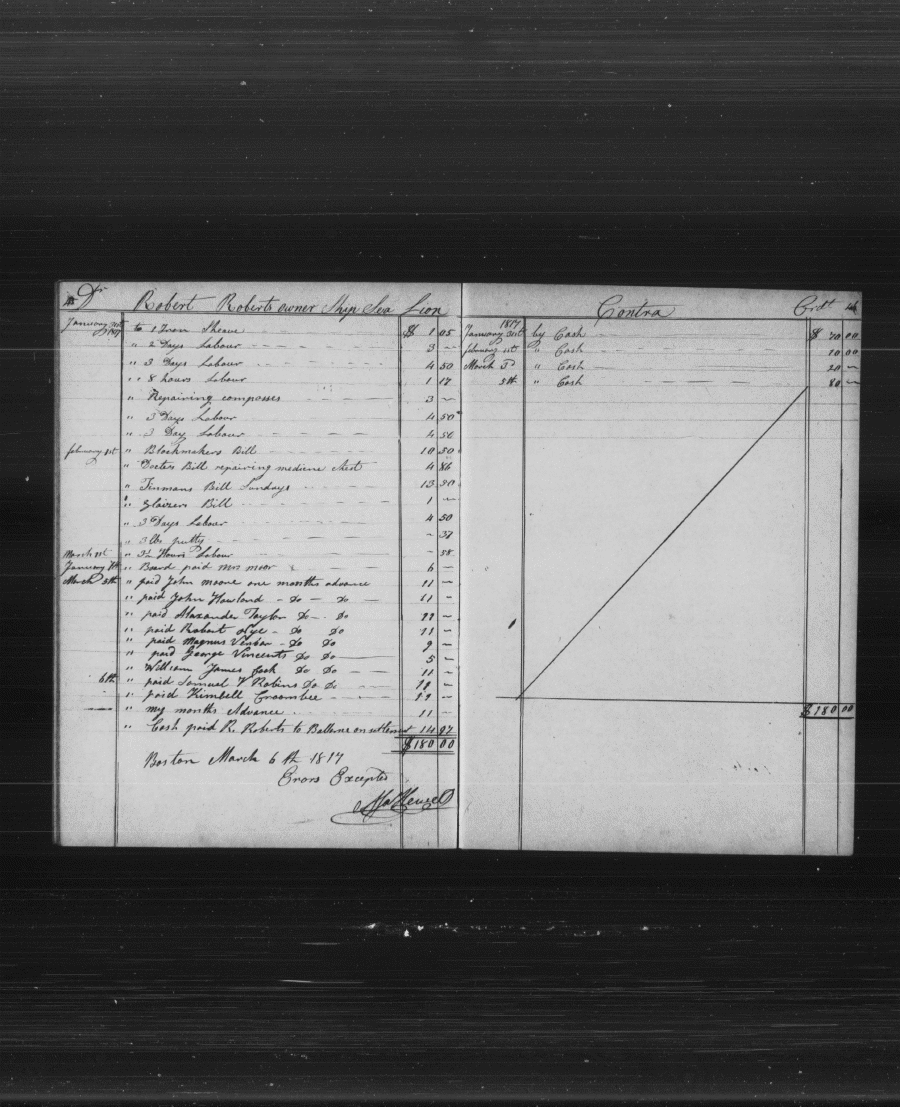 Dr Robert Roberts owner Ship Sea Lion
January 31st 1817 to 1 Iron Sheave $ 1 05
" 2 Days Labour 3 —
" 3 Days Labour 4 50
" 8 hours Labour 1 17
" Repairing compasses 3 —
" 3 Days Labour 4 50
" 3 Day Labour 4 50
february 1st " Blockmakers Bill 10 50
" Docters Bill repairing medicine Chest 4 86
" Tinmans Bill Sundays 13
" Glaizers Bill 1 —
" 3 Days Labour 4 50
" 3 lb putty — 37
March 1st " 3½ Hours Labour — 38
January " Board paid mrs moor 6 —
March 5th " paid John moore one months advance 11 —
" paid John Howland — Do — Do — 11 —
" paid Alaxander Taylor Do — Do
" paid Robert Nye — Do Do 11 —
" paid Magnus — Do Do 9 —
" paid George Vincents Do Do 5 —
" William James Cook Do Do 11 —
6th " paid Samuel Robins Do Do
" paid Kimbell Croombee
" my months Advance 11 —
" Cash paid R. Roberts to Ballance on settlement 14 97
$180 00
Boston March 6th 1817
Erors Excepted
Contra Crdt
1817
January 31st by Cash $ 70 00
february 1st " Cash 10 00
March 3d " Cash 20 —
5th " Cash 80 —
$180 00